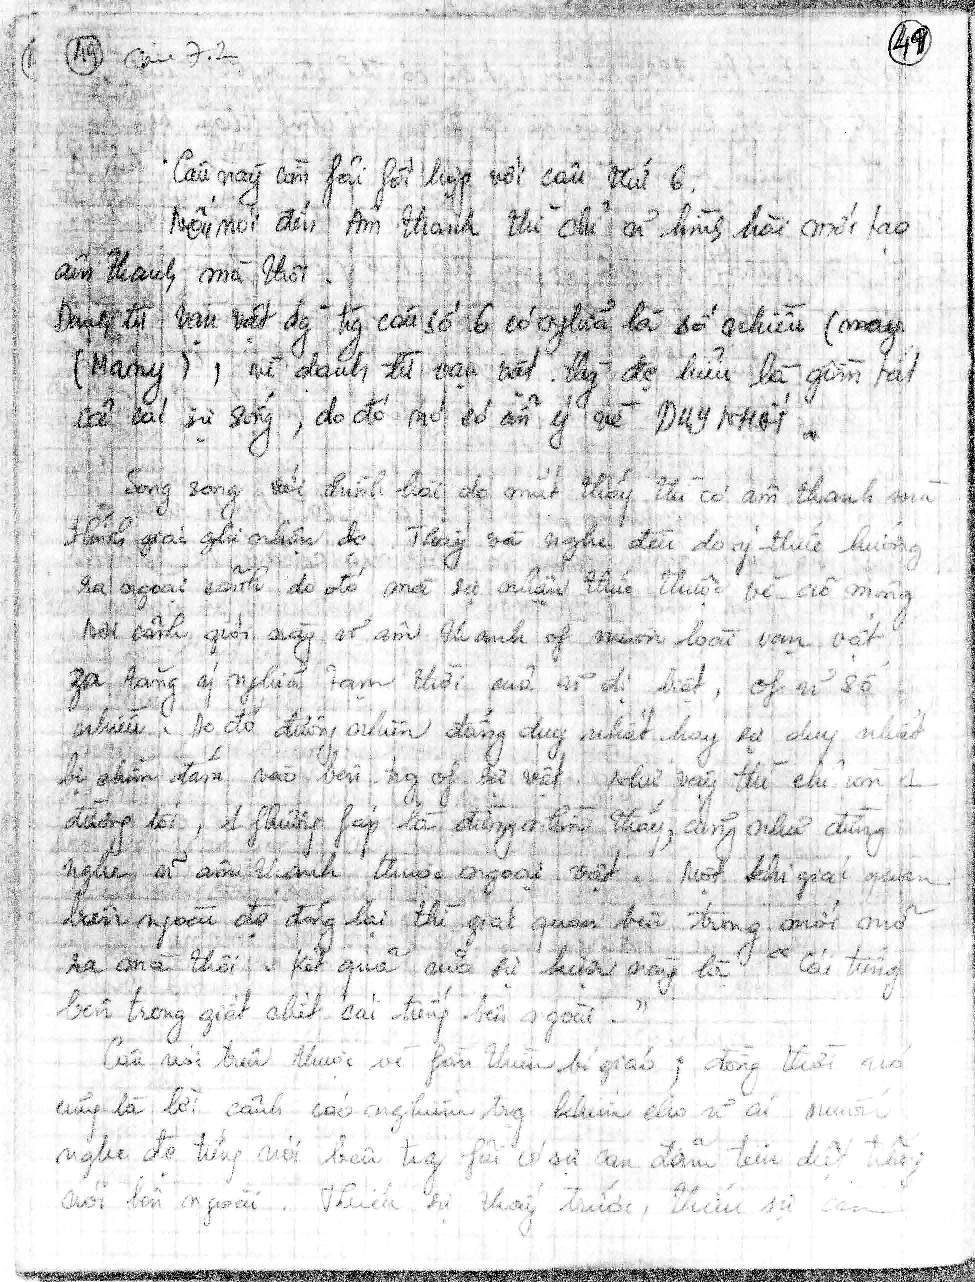 49 Câu 7.2 49
Câu nầy còn fải fối hợp với câu thứ 6.
Nếu nói đến Âm thanh thì chỉ vì hình hài mới tạo
âm thanh mà thôi.
Danh từ vạn vật dg tg câu số 6 có nghĩa là số nhiều (many
(Many), về danh từ vạn vật. đc hiểu là gồm tất
cả cái sự sống, do đó nó có ẩn ý về DUY NHẤT.
Song song với hình hài do mắt thấy thì có âm thanh mà
thính giác ghi nhận do. Thấy và nghe đều do ý thức hướng
ra ngoài cảnh do đó mà sự nhận thức thuộc về ảo mộng
Nơi cảnh giới nầy vì âm thanh of muôn loài vạn vật
za tăng ý nghĩa tạm thời của vì dị biệt, of vì số
nhiều. Do đó đương nhiên đấng duy nhất hay sự duy nhất
bị nhìn đắm vào bên tg of sự vật. Như vậy thì chỉ còn 1
đường lối, 1 fương fáp là đừng nhìn thấy, cũng như đừng
nghe vì âm thanh thuộc ngoại vật. Một khi giác quan
bên ngoài đc đóng lại thì giác quan bên trong mới mở
ra mà thôi. Kết quả của sự kiện nầy là " Cái tiếng
bên trong giết chết cái tiếng bên ngoài."
Câu nói trên thuộc về fần thiên bí giáo; đồng thời nó
cũng là lời cảnh cáo nghiêm trg khiến cho vì ai muốn
nghe đc tiếng nói bên trg fải có sự can đảm tiêu diệt tiếng
nói bên ngoài. Thiếu sự thấy trước, thiếu sự can